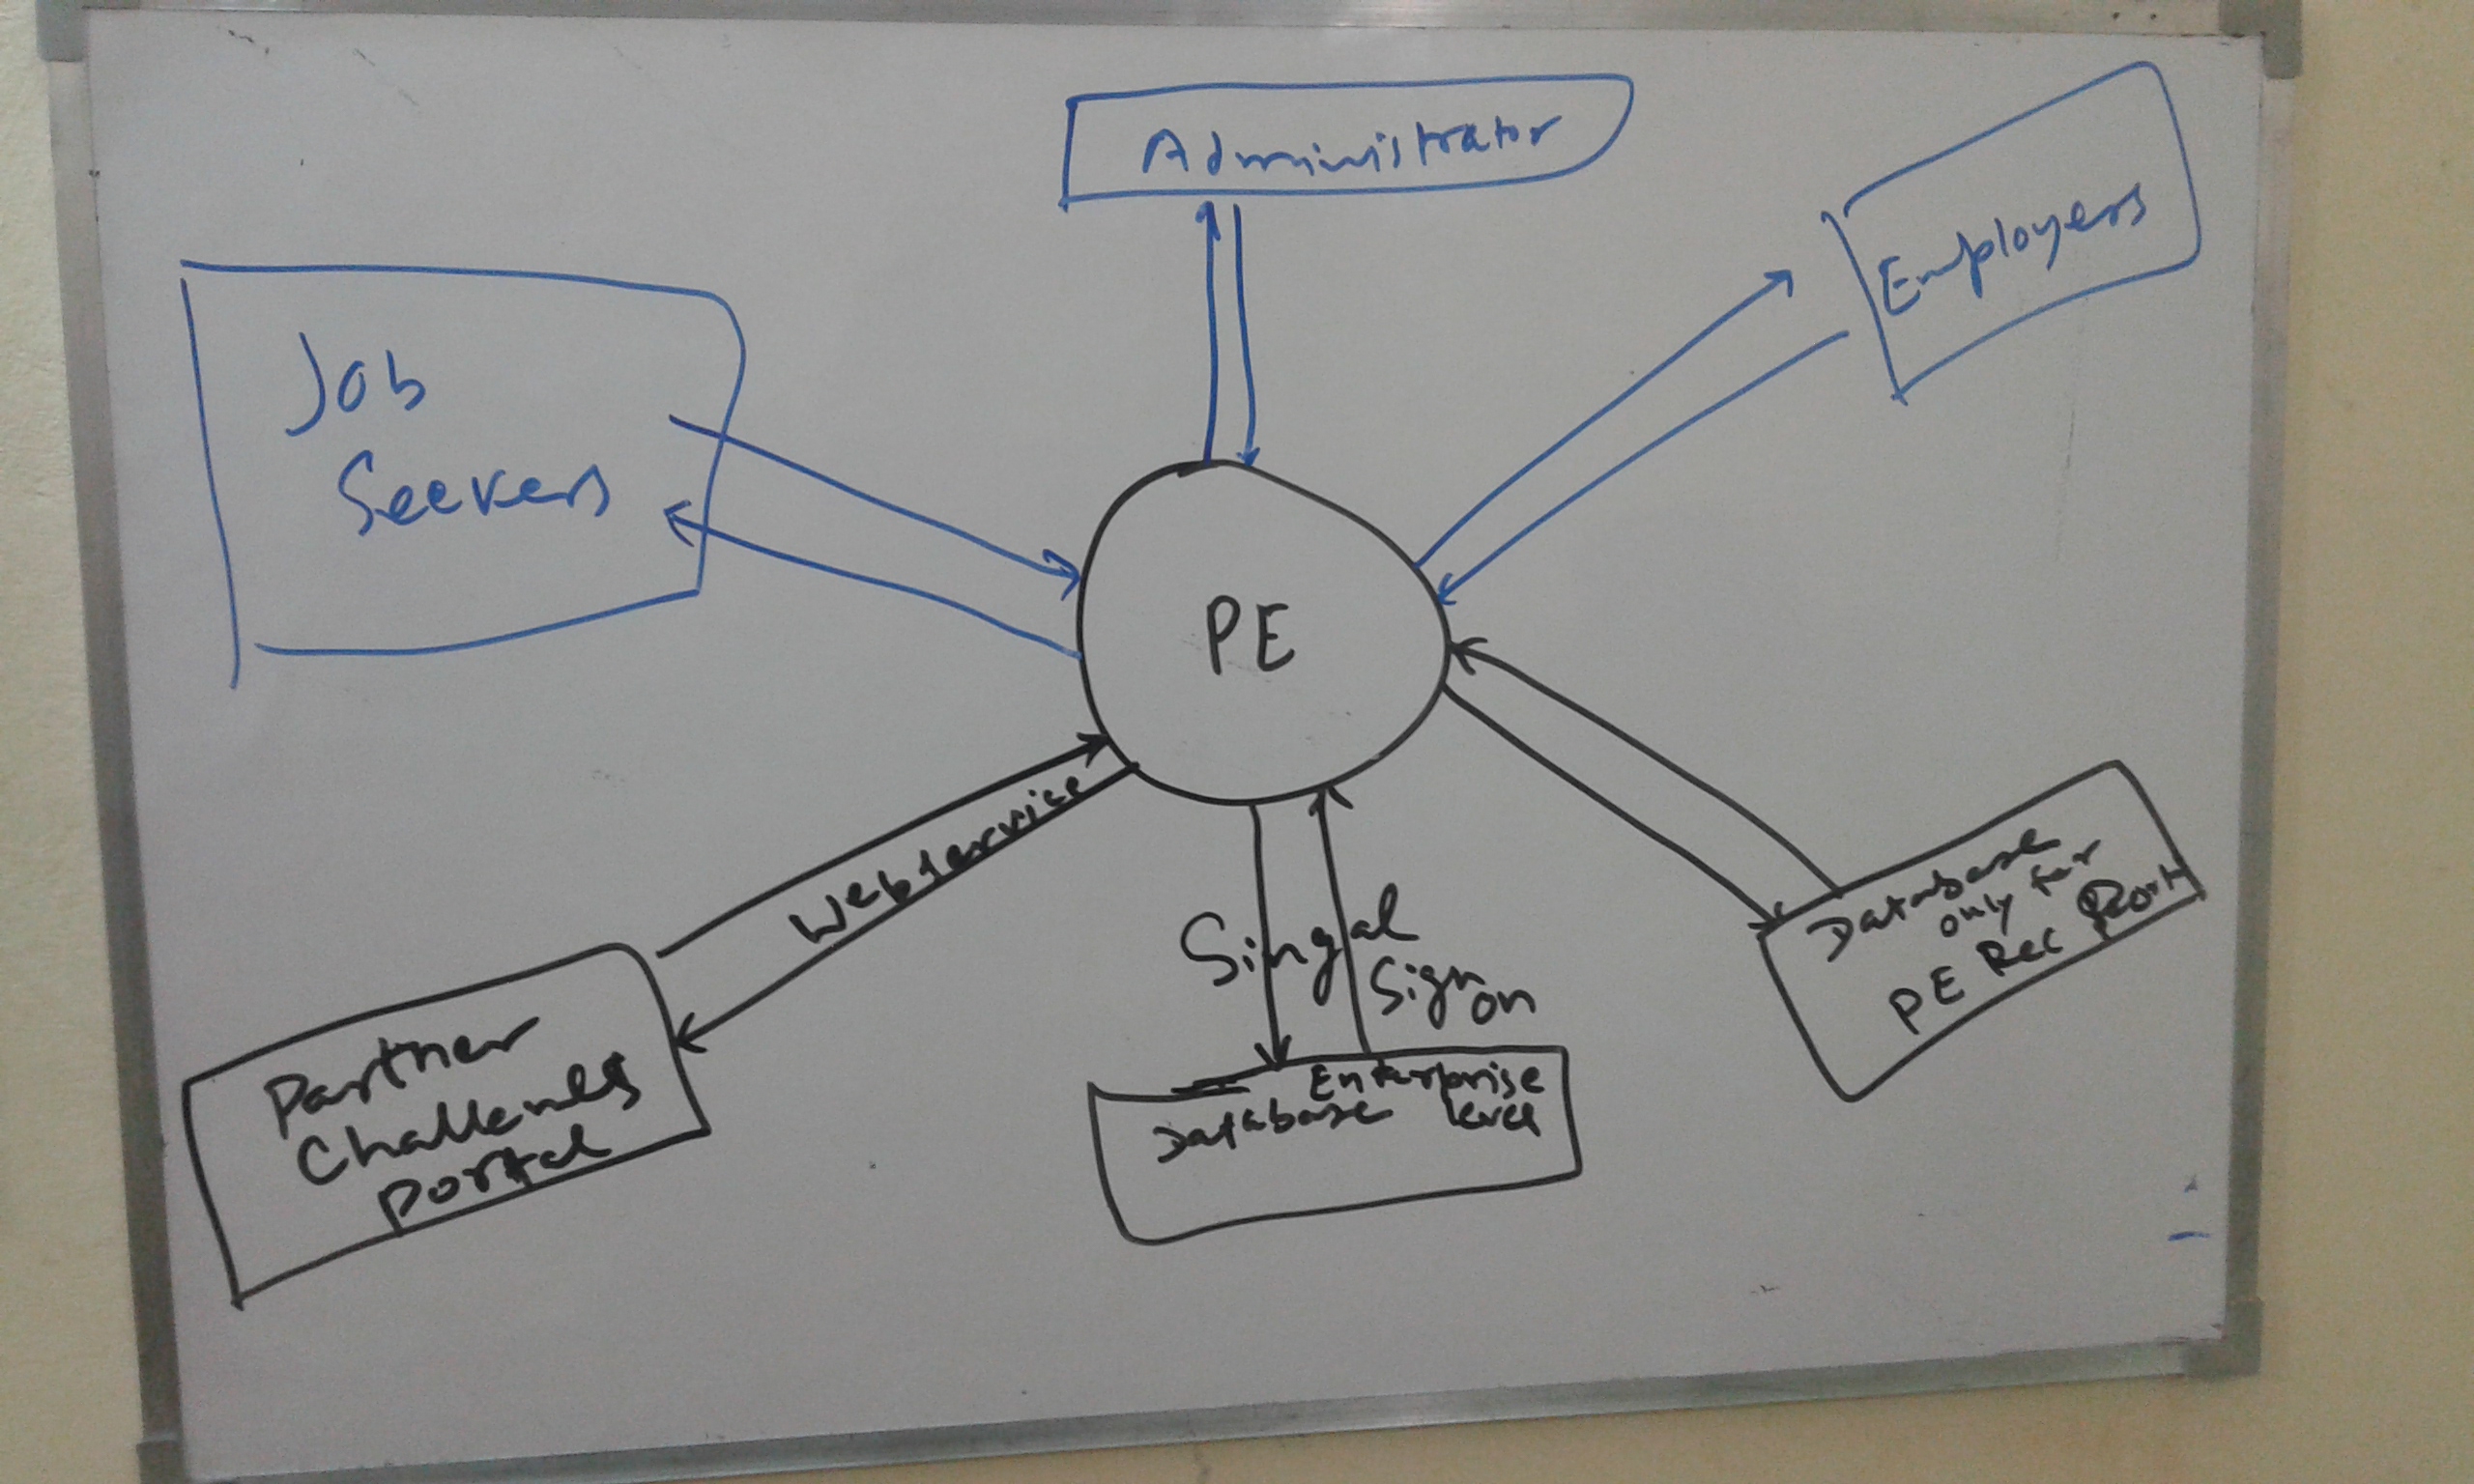 Administrator
Employers
Job
Seekers
PE
Webservice
Singal
Sign on
Database
only for
PE Rec
Partner
Portal
Enterprise
Database level